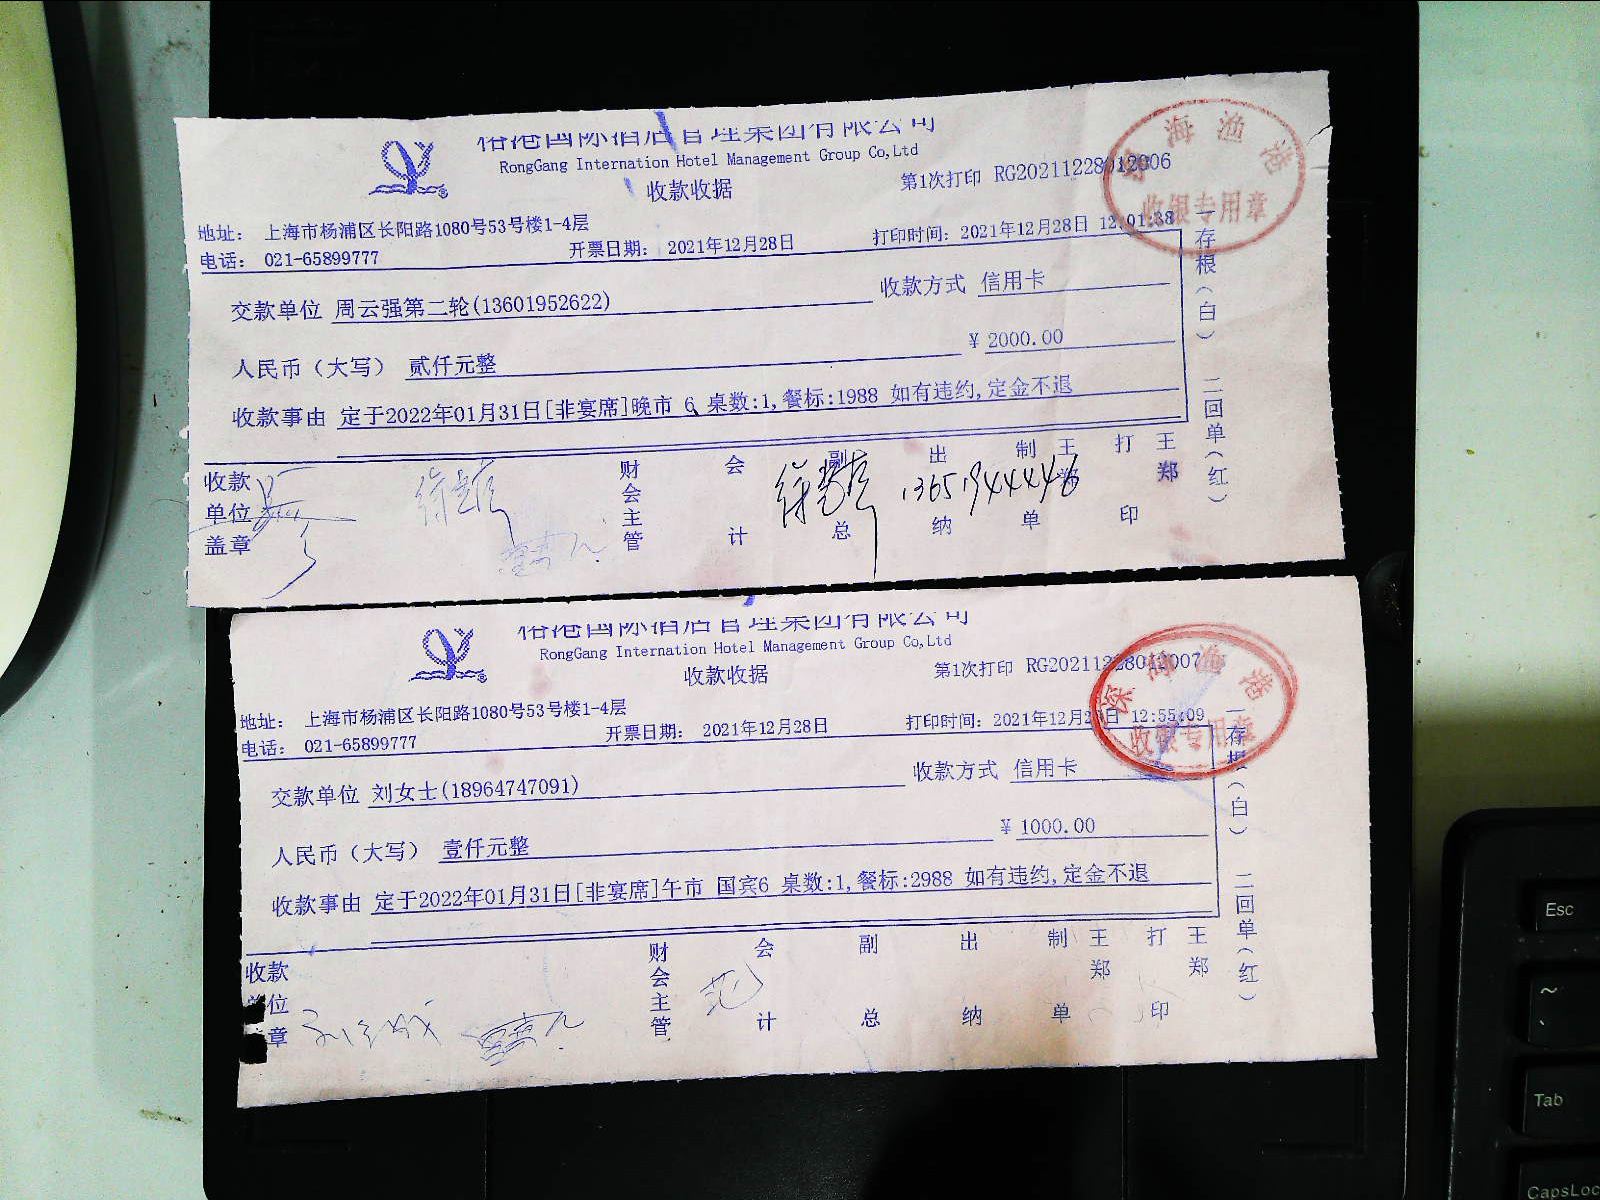 榕港国际酒店管理集团有限公司
RongGang Internation Hotel Management Group Co,Ltd
收款收据
第1次打印 RG20211228012006
地址： 上海市杨浦区长阳路1080号53号楼1-4层
电话： 021-65899777
开票日期： 2021年12月28日
打印时间：2021年12月28日 12:01:38
交款单位 周云强第二轮(13601952622)
收款方式 信用卡
人民币（大写） 贰仟元整
¥ 2000.00
收款事由 定于2022年01月31日[非宴席]晚市 6 桌数:1,餐标:1988 如有违约,定金不退
收款单位盖章
财会主管
会计
副总
出纳
制单 王郑
打印 王郑
13651944446
一存根（白） 二回单（红）
深海渔港
收银专用章
榕港国际酒店管理集团有限公司
RongGang Internation Hotel Management Group Co,Ltd
收款收据
第1次打印 RG20211228012007
地址： 上海市杨浦区长阳路1080号53号楼1-4层
电话： 021-65899777
开票日期： 2021年12月28日
打印时间：2021年12月28日 12:55:09
交款单位 刘女士(18964747091)
收款方式 信用卡
人民币（大写） 壹仟元整
¥ 1000.00
收款事由 定于2022年01月31日[非宴席]午市 国宾6 桌数:1,餐标:2988 如有违约,定金不退
收款
位
章
财会主管
会计
副总
出纳
制单 王郑
打印 王郑
范
一存根（白） 二回单（红）
深海渔港
收银专用章
Esc
~
Tab
CapsLoc